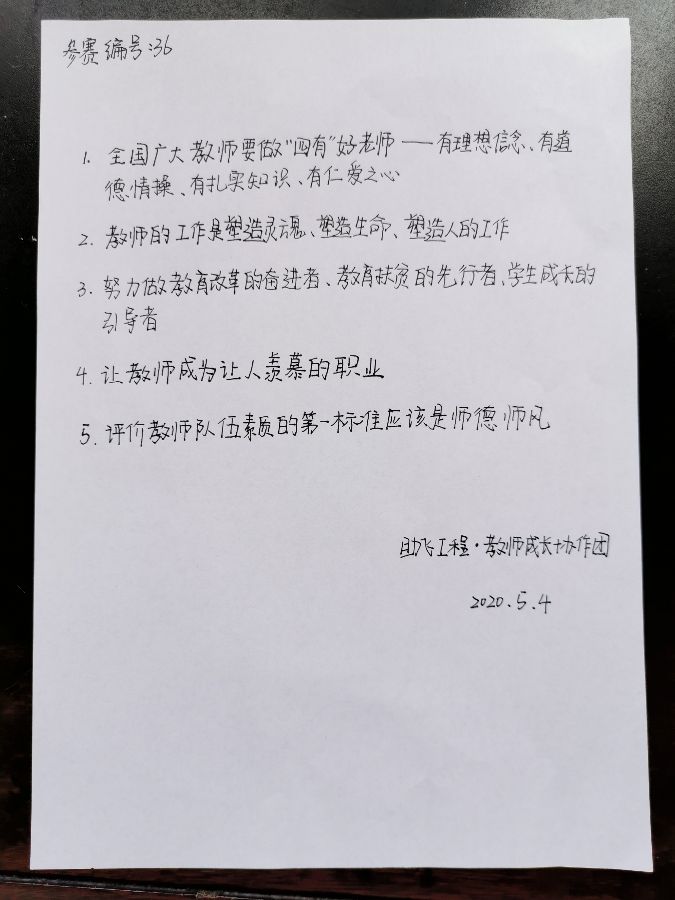 参赛编号:36
1. 全国广大教师要做“四有”好老师——有理想信念、有道
德情操、有扎实知识、有仁爱之心
2. 教师的工作是塑造灵魂、塑造生命、塑造人的工作
3. 努力做教育改革的奋进者、教育扶贫的先行者、学生成长的
引导者
4. 让教师成为让人羡慕的职业
5. 评价教师队伍素质的第一标准应该是师德师风
助飞工程·教师成长协作团
2020.5.4